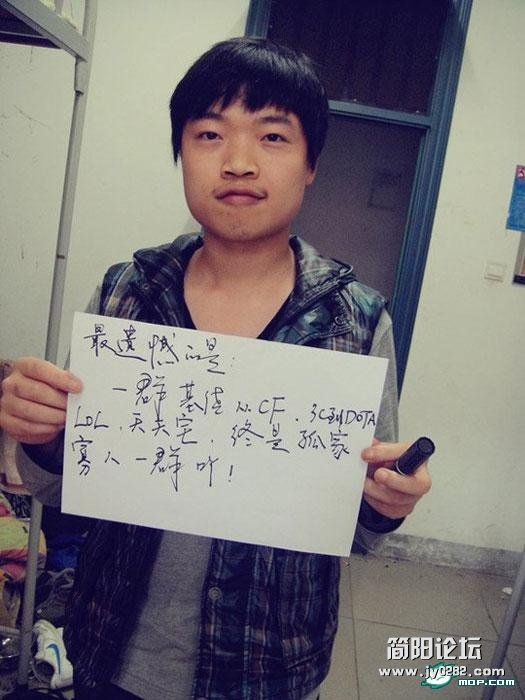 最遗憾的是：
一群基佬从CF.3C到DOTA
LOL,天天宅，终是孤家
寡人一群吖！
简阳论坛
www.jy0282.com
MOP.COM